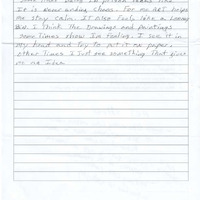 It is Never ending Chaos. For me ART helps
me stay Calm. IT also feels like a
I Think The Drawings and paintings
some Times show Im feeling. I see it in
my head and Try to put it on paper,
other Times I just see something That gives
me an Idea